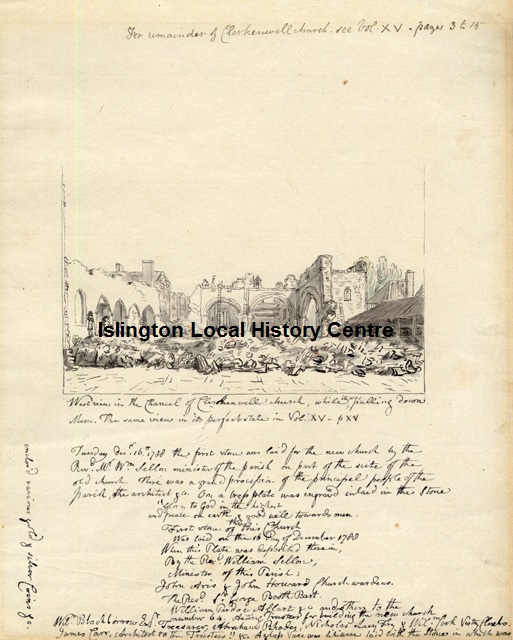 For remainder of Clerkenwell church see Vol XV - pages 3 to 15
Islington Local History Centre
West view in the chancel of Clerkenwell church, while pulling down
The same view in its perfect state in Vol. XV - p XV
Tuesday Decr. 16th. 1788 the first stone was laid for the new church by the
Revd. Mr. Wm. Sellon minister of the parish on part of the scite of the
old church. There was a grand procession of the principal people of the
Parish, the architect &c. On a brass plate was engraved inlaid in the stone
"Glory to God in the highest
and peace on earth & good will towards men.
First stone of this Church
Was laid on the 16 Day of December 1788
When this Plate was deposited therein,
By the Revd. William Sellon,
Minister of this Parish;
John Howard Church wardens.
The Revd. Sr. George Booth Bart.
William &c and others to the
number 64, Trustees for building the new church
Wm. Blackborrow Esqr. Treasurer, Abraham Rhodes, Nicholas & Willm. Cook Vestry Clerks.
James Carr, Architect to the Trustees" &c A Vase was laid with the stone in which was
silver Coins &c